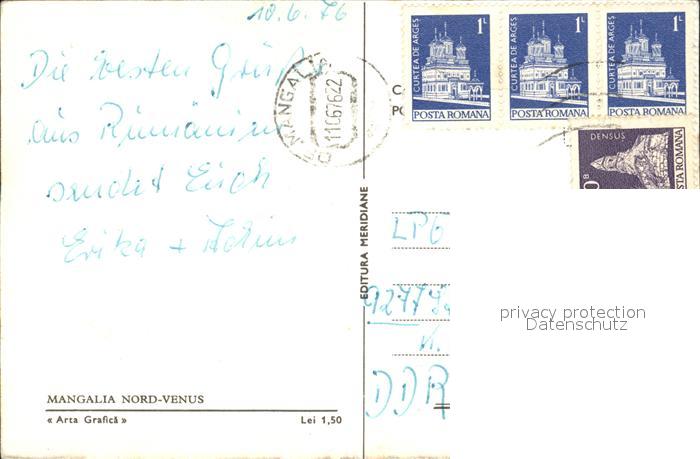 10.6.76
Die besten Grüße
aus Rumänien
sendet Euch
Erika +
MANGALIA NORD-VENUS
« Arta Grafică » Lei 1,50
EDITURA MERIDIANE
MANGALIA
110676-22
1L 1L 1L
CURTEA DE ARGES CURTEA DE ARGES CURTEA DE ARGES
POSTA ROMANA POSTA ROMANA POSTA ROMANA
DENSUS
POSTA ROMANA
DDR
privacy protection
Datenschutz